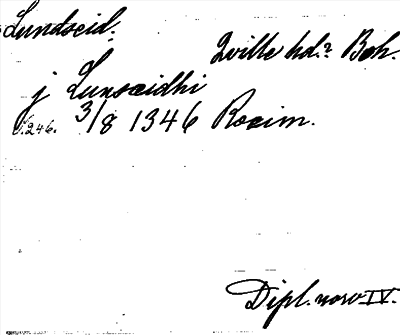 Lundseid.
2ville hd.? Boh.
j Lunseidhi
S.246. 3/8 1346 Roeim.
Dipl. norv IV.